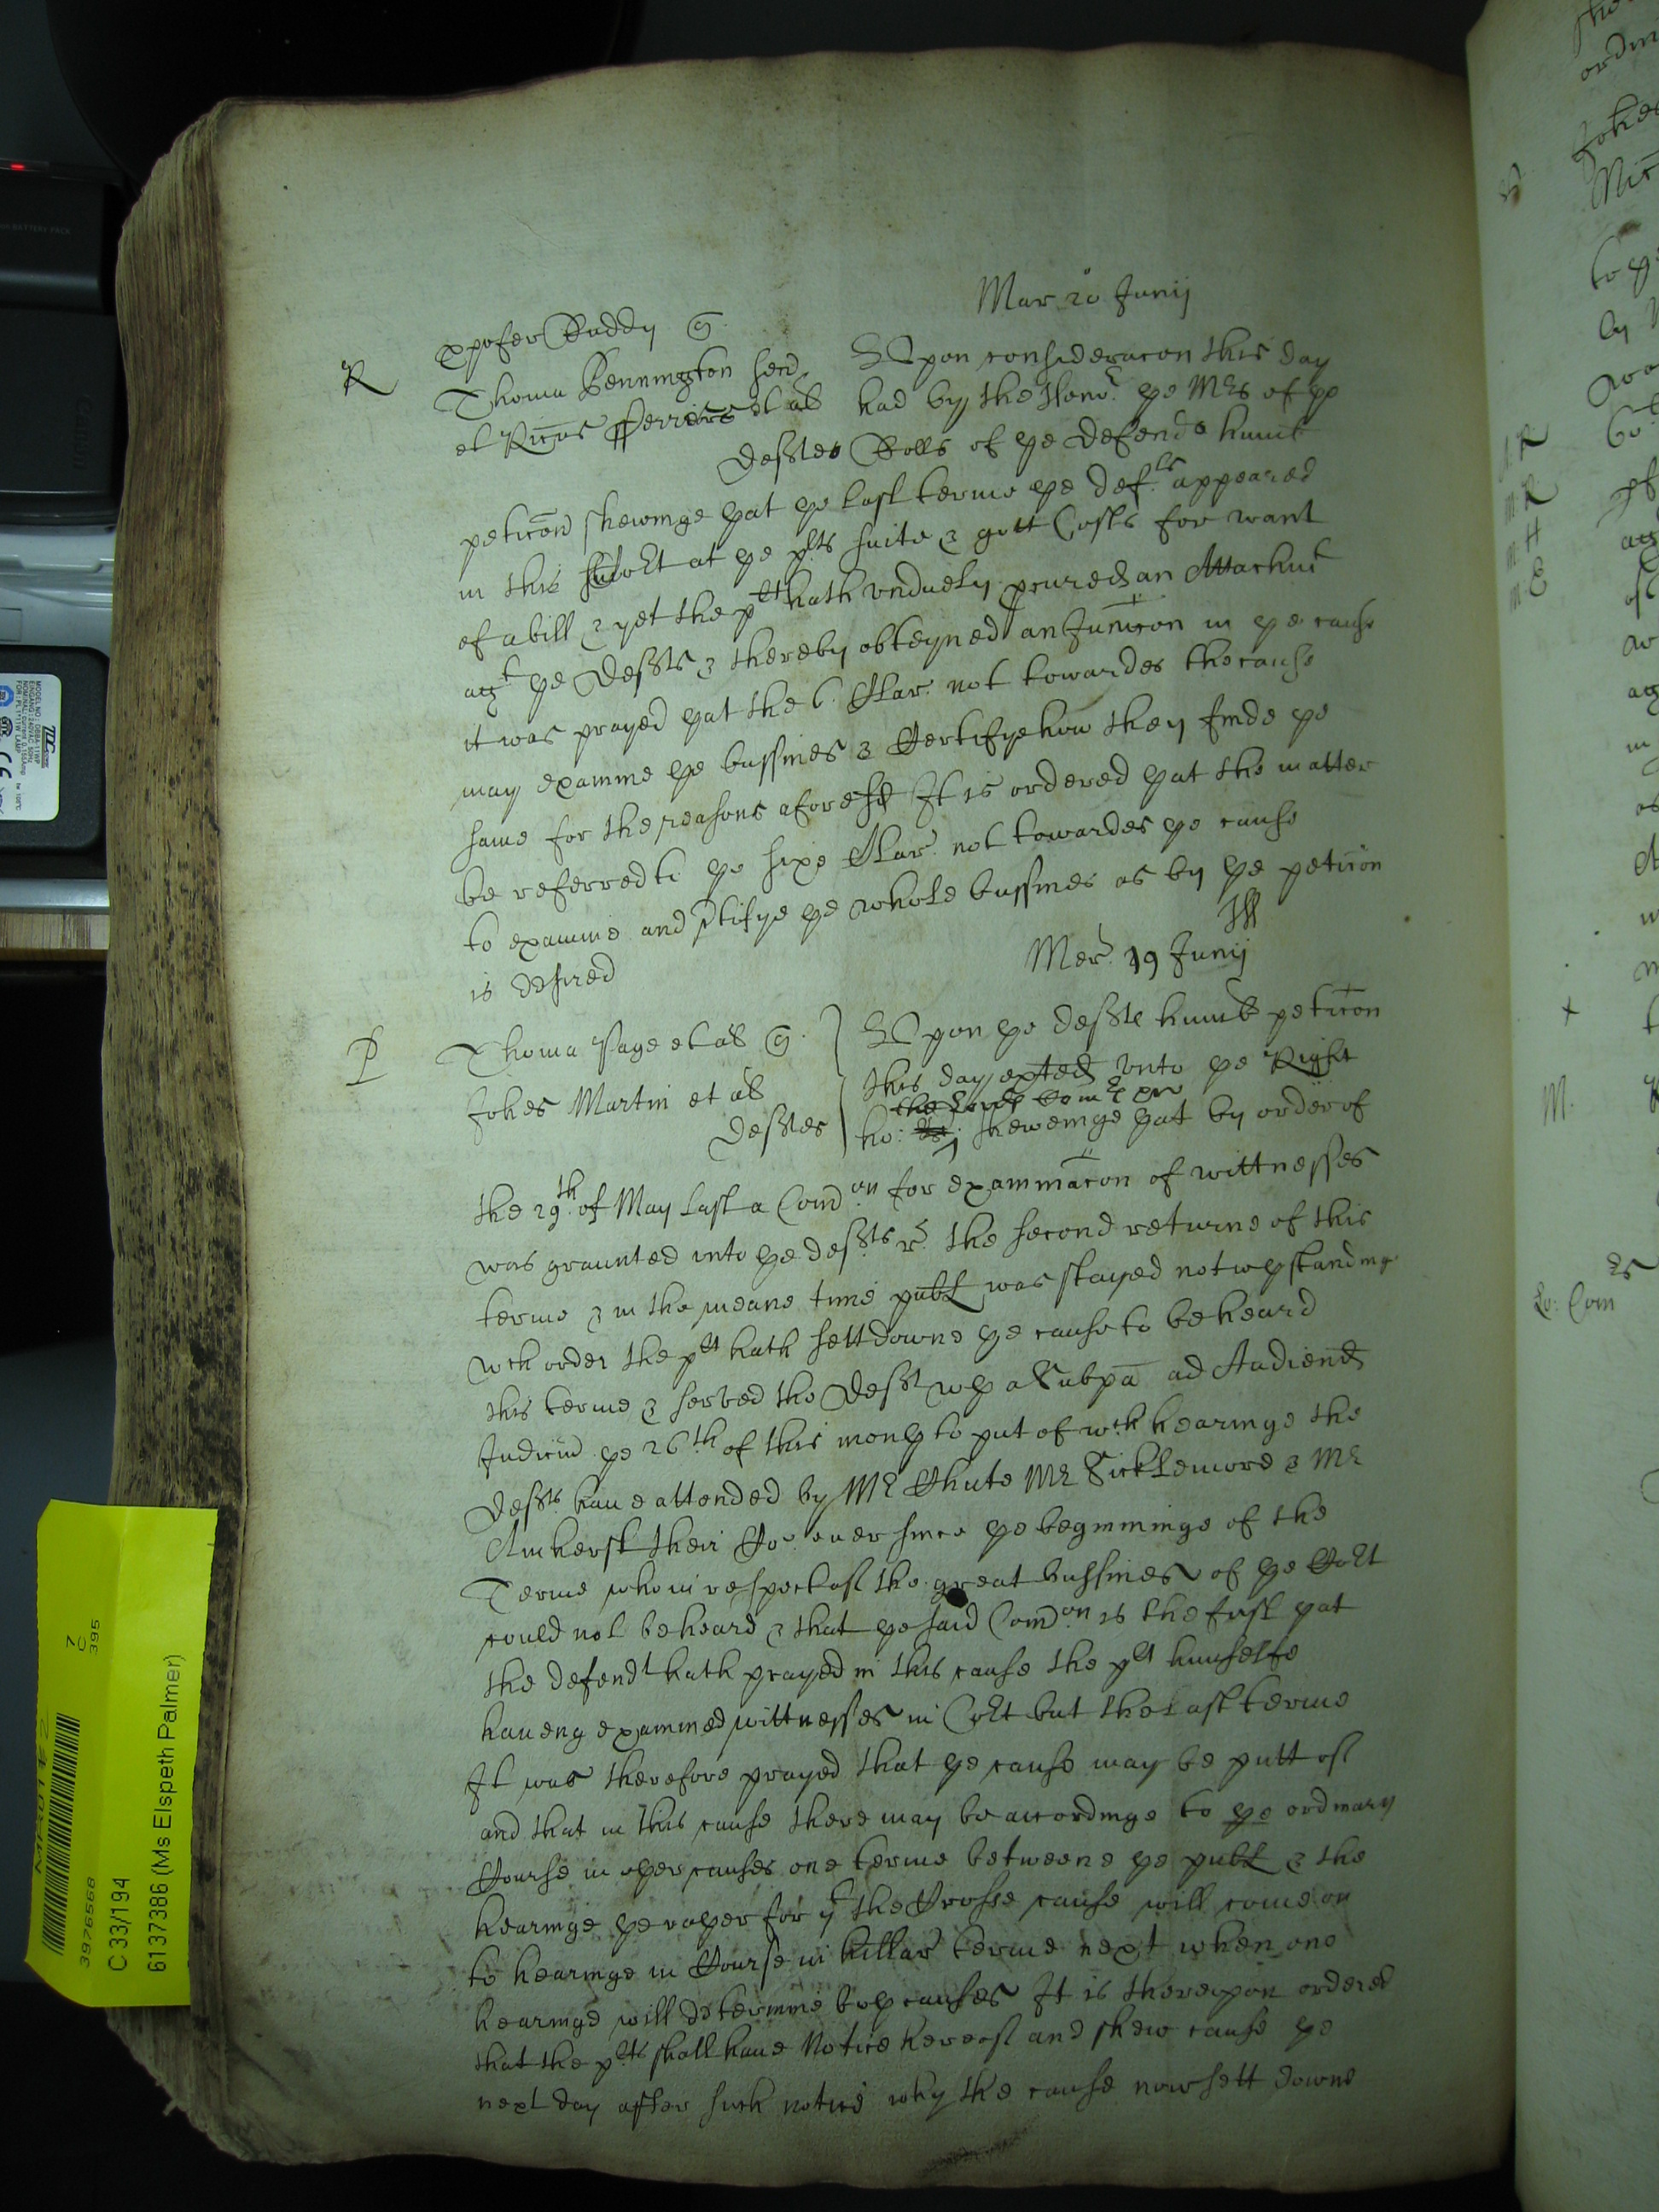 Mar 20 Junij
R
xpofer Buddy q
Thoma Bennington sen
et Ricus fferrers et al
deftes
Vpon consideracon this day
had by the Honor ye Mrs of ye
Rolls of ye defendts humb
peticon shewinge yat ye last terme ye deft appeared
in this Court at ye plts suite & gott Costs for want
of a bill & yet the plt hath vnduely pcured an Attachmt
agt ye Defts & thereby obteyned an Junccon in ye cause
it was prayed yat the 6 Clar not towardes the cause
may examine ye bussines & Certifye how they finde ye
same for the reasons aforesd It is ordered yat the matter
be referred to ye sixe Clar not towardes ye cause
to examine and ptifye ye whole bussines as by ye peticon
is desired
Mer 19 Junij
P
Thoma Page et al q
Johes Martin et al
deftes
Vpon ye defte humb peticon
this day exted vnto ye Right
the Lords Comrs
ho: shewinge yat by order of
the 29th of May last a Comon for examinacon of wittnesses
was graunted vnto ye defts r the second returne of this
terme & in the meane time publ was stayed notwystandinge
wch order the plt hath sett downe ye cause to be heard
this terme & served the Deft wy a Subpa ad Audiend
Judiciu ye 26th of this mony to put of wch hearinge the
Defts haue attended by Mr Chute Mr Sicklemore & Mr
Amherst their Co euer since ye beginninge of the
Terme who in respect of the great bussines of ye Cort
could not be heard & that ye said Comon is the first yat
the defendt hath prayed in this cause the plt himselfe
haueing examined wittnesses in Cort but the last terme
It was therefore prayed that ye cause may be putt of
and that in this cause there may be accordinge to ye ordinary
Course in oyer causes one terme betweene ye publ & the
hearinge ye rayer for yt the Crosse cause will come on
to hearinge in Course in hillar terme next when one
hearinge will determine boy causes It is therevpon ordered
that the plts shall haue Notice hereof and shew cause ye
next day after such notice why the cause now sett downe
39765568
7
C
395
C 33/194
6137386 (Ms Elspeth Palmer)